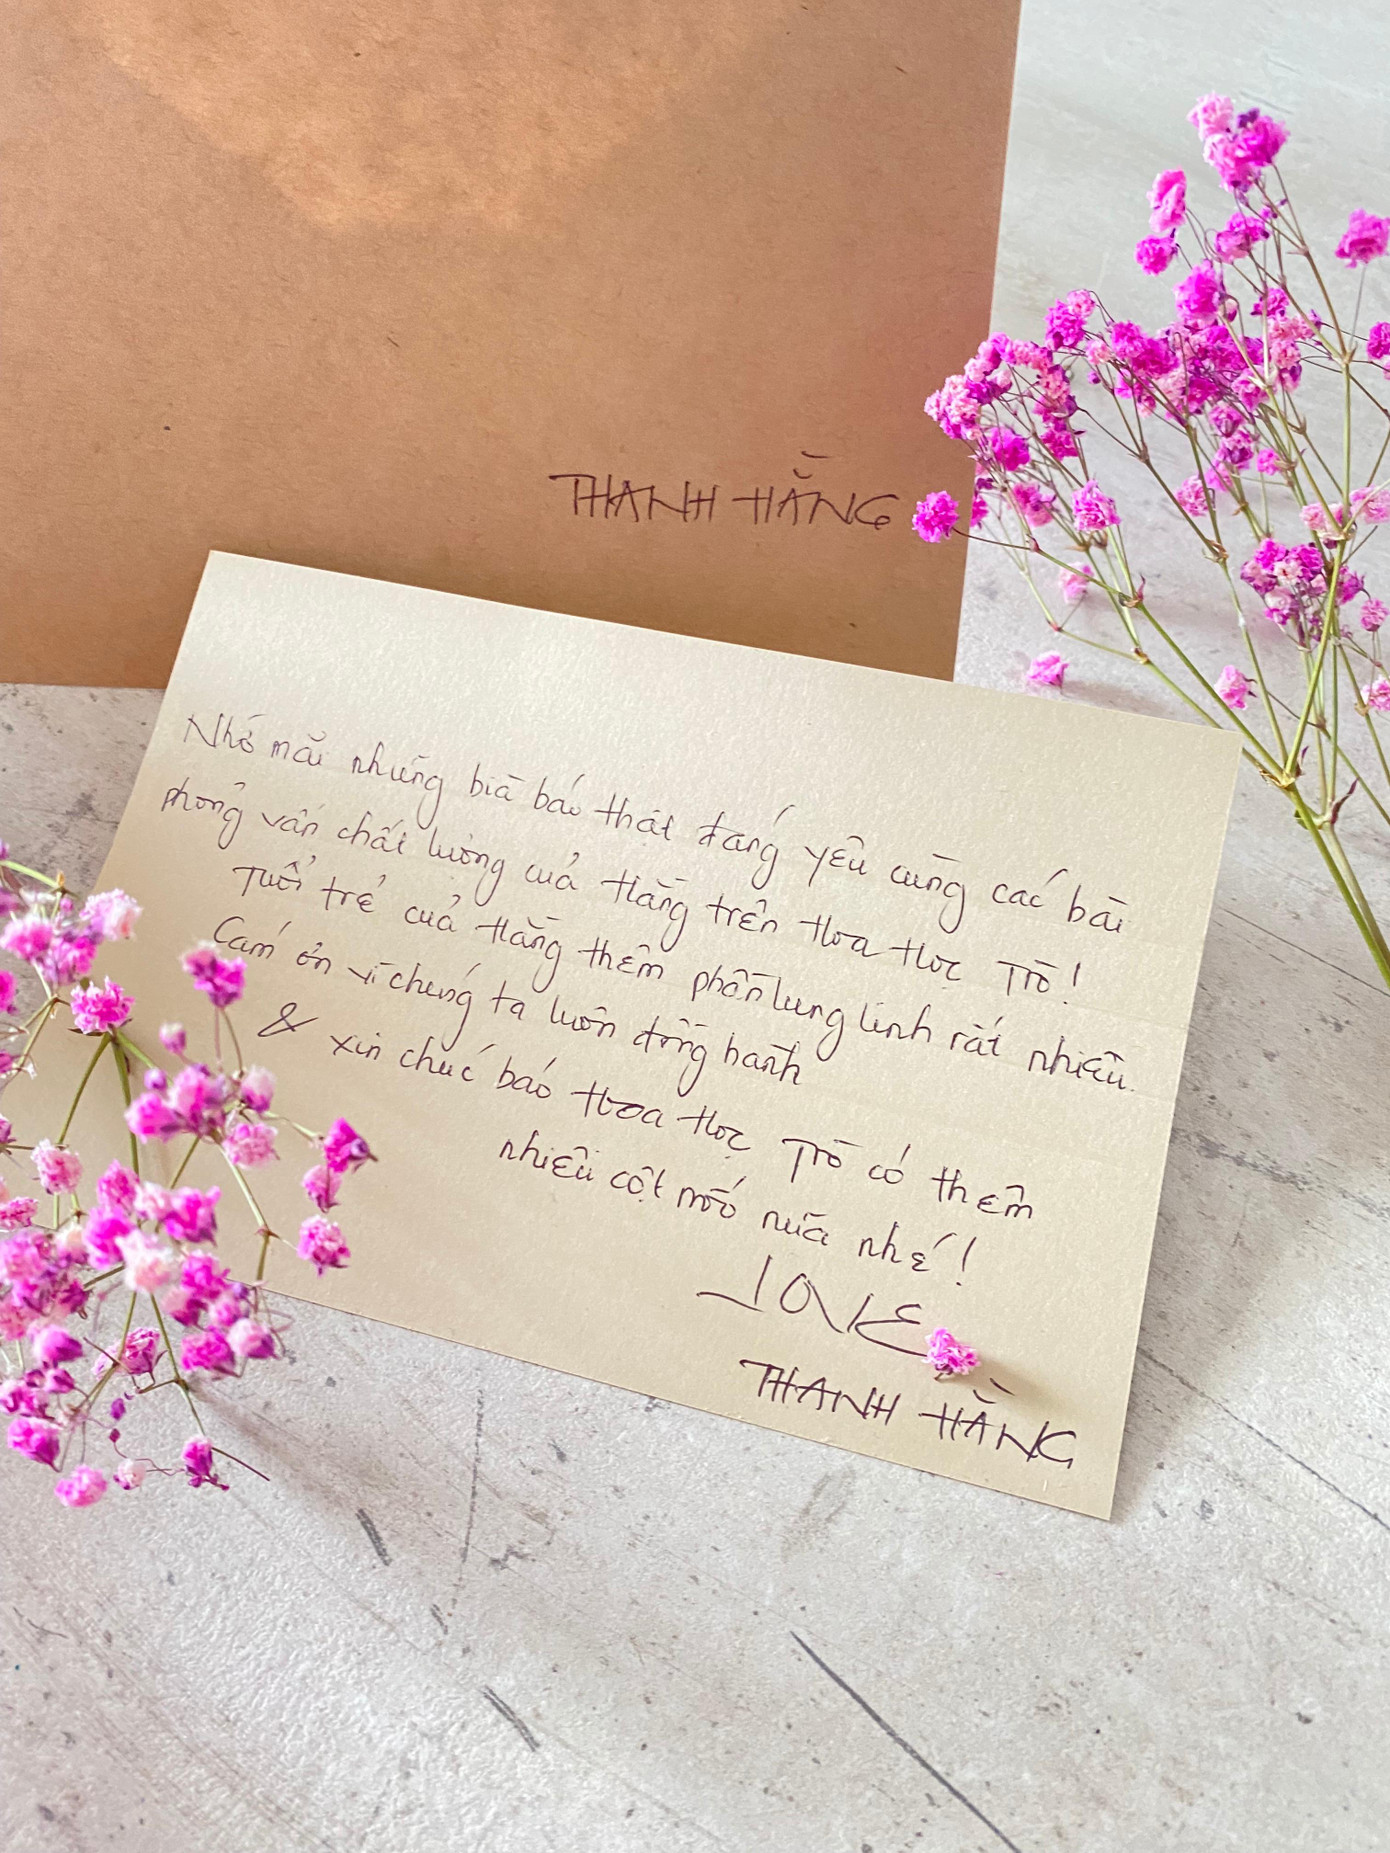 THANH HẰNG
Nhớ mãi những bìa báo thật đáng yêu cùng các bài
phỏng vấn chất lượng của Hằng trên Hoa Học Trò!
Tuổi trẻ của Hằng thêm phần lung linh rất nhiều.
Cám ơn vì chúng ta luôn đồng hành
& xin chúc báo Hoa Học Trò có thêm
nhiều cột mốc nữa nhé!
LOVE
THANH HẰNG